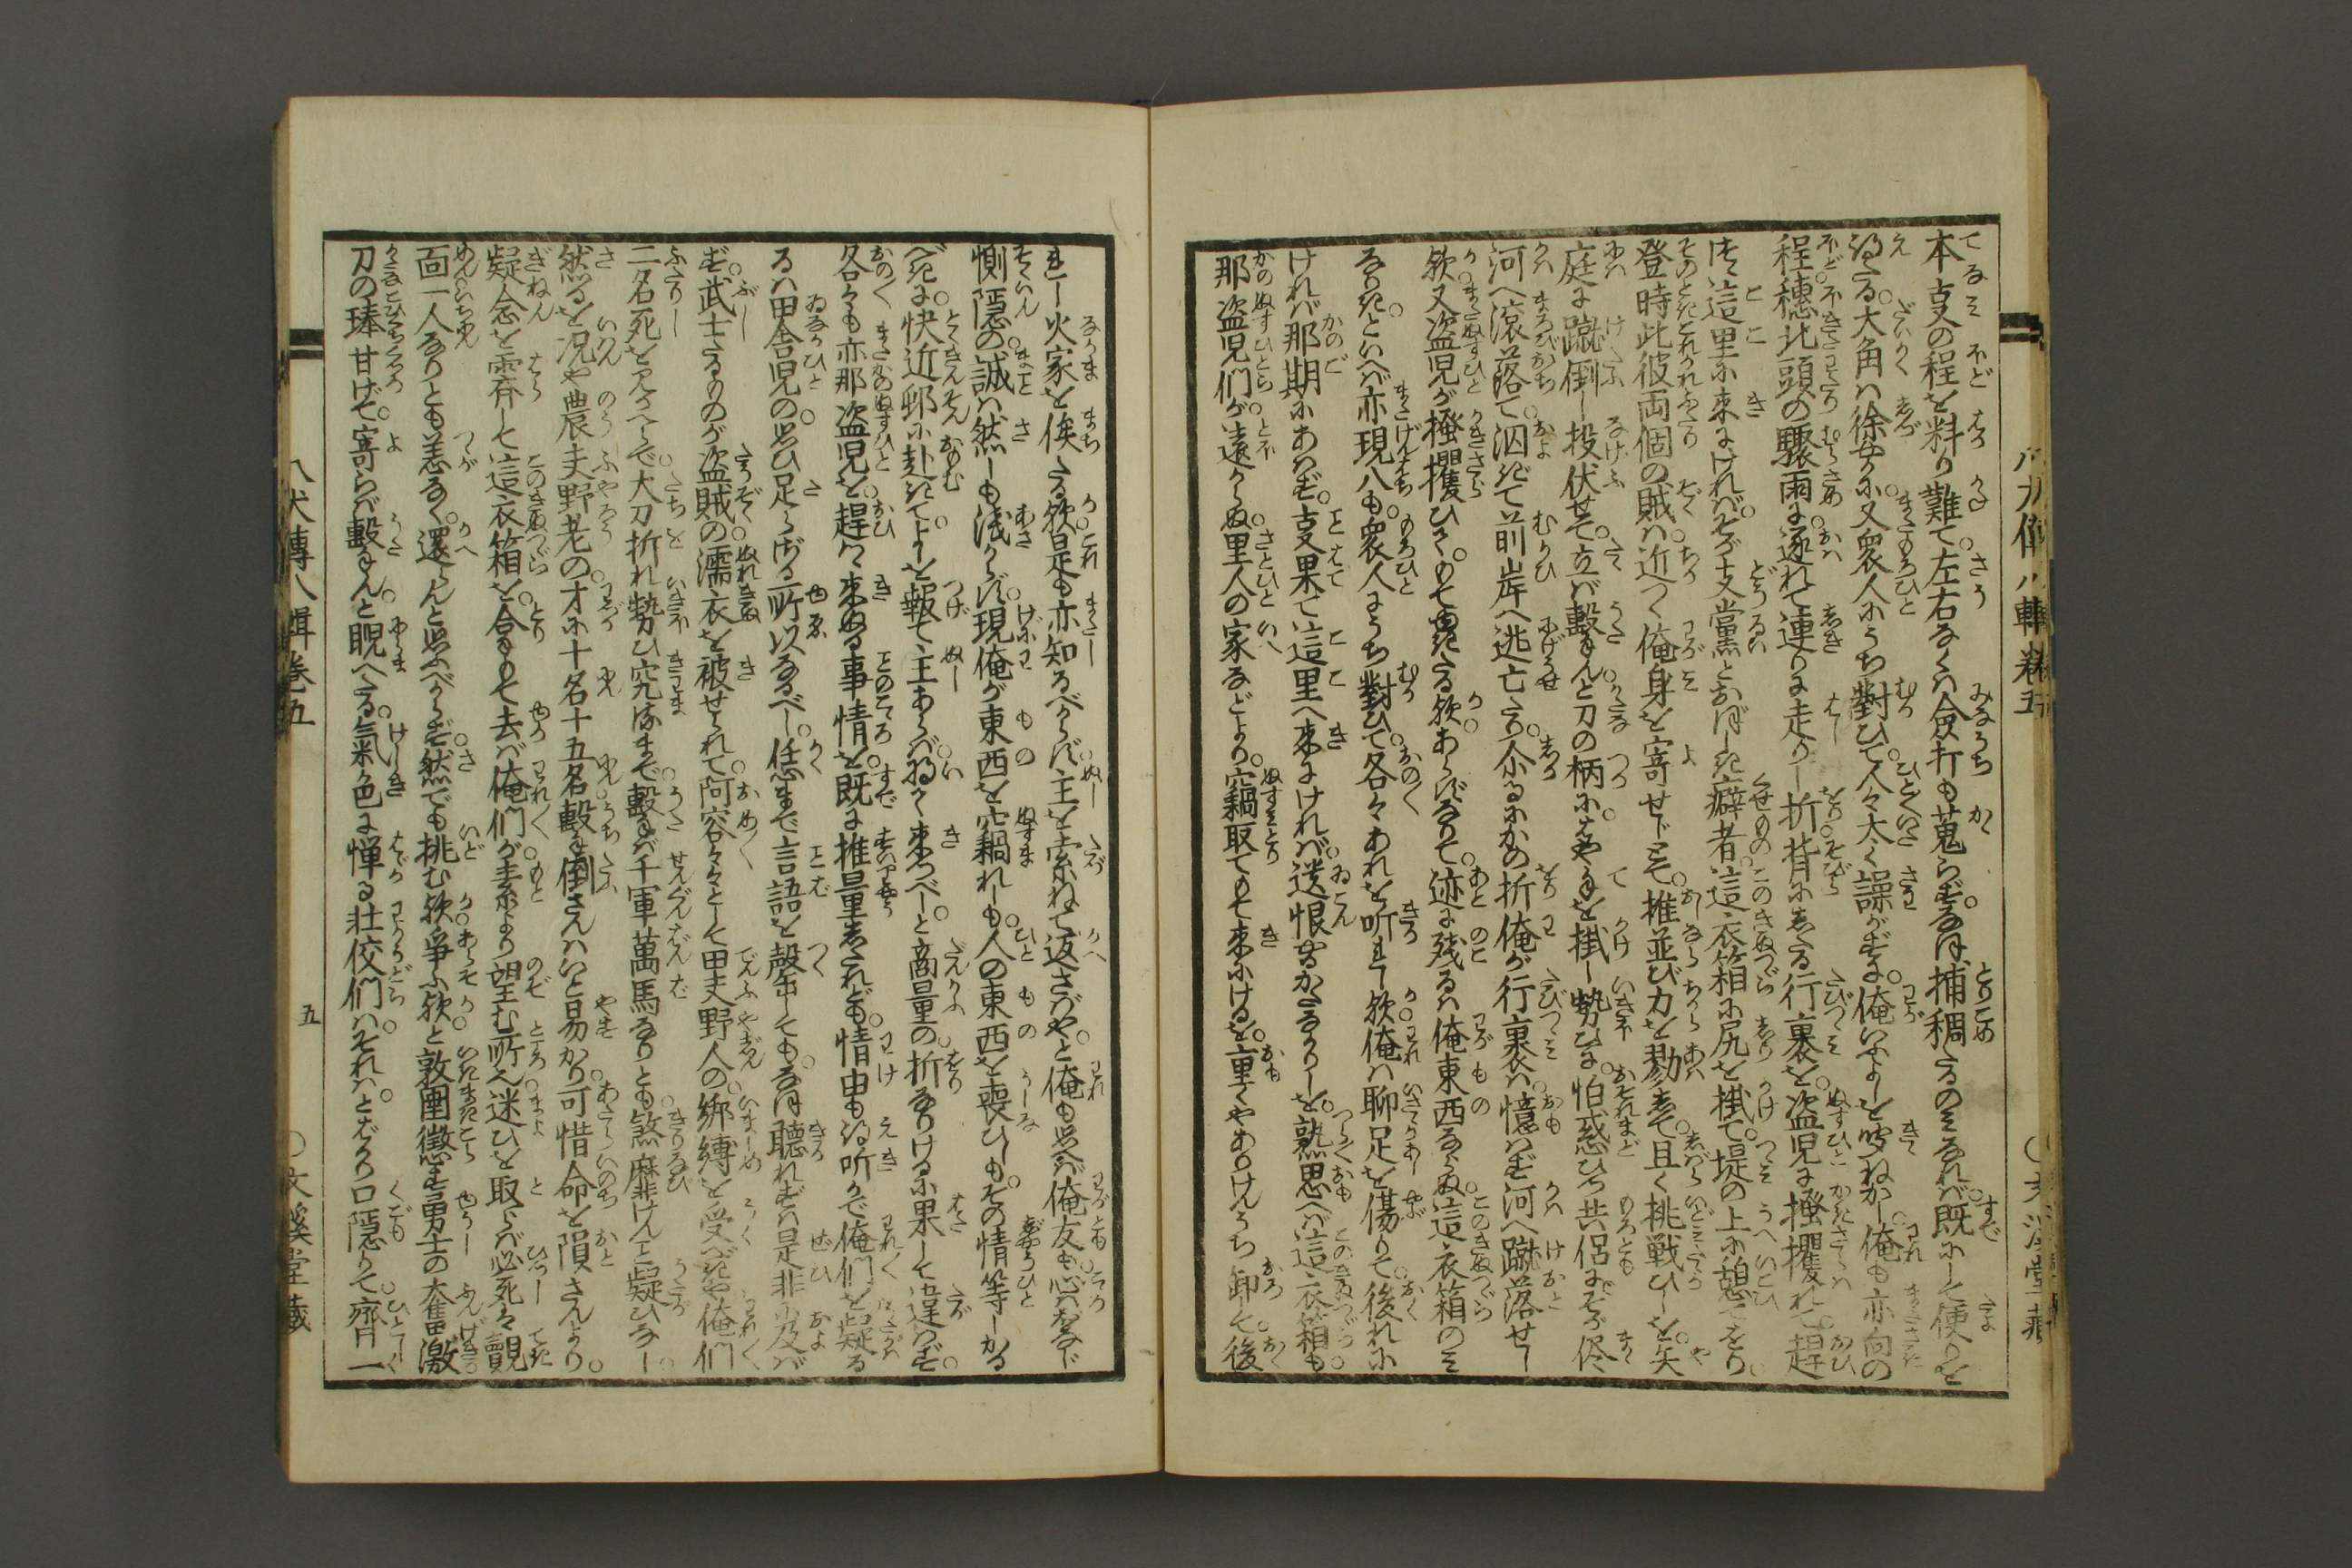 本支の程を料り難て左右なくは僉打も蒐らず。なほ捕稠たるのみなれば既にして便りを
得たる。大角は徐やかに又衆人にうち對ひて。人々太く譟がずに。俺いふよしを聞ねかし。俺も亦向の
程穂北頭の驟雨に逐れて連りに走りし折背にしたる行裹を。盗児に掻攫れて。趕
つゝ這里に来にければ。そが支黨とおぼしき癖者。這衣箱に尻を掛て。堤の上に憩てをり
登時此彼両個の賊は。近つく俺身を寄せじとて。推並び力を勠して。且く挑戦ひしを。矢
庭に蹴倒し投伏せて。立ば撃んと刀の柄に。はや手を掛し勢ひに。怕惑ひつ共侶に。そが侭
河へ滾落て。泅ぎて前岸へ逃亡たり。尓るにかの折俺が行裹は。憶はず河へ蹴落せし
欤。又盗児が掻攫ひさりもて逃たる欤。あらずなりて。迹に残るは俺東西ならぬ。這衣箱のみ
なりき。といへば亦現八も。衆人にうち對ひて。各々あれを听れし欤。俺は聊足を傷りて。後れに
ければ那期にあはず。支果て這里へ来にければ。遺恨やるかたなかりしを。熟思へば這衣箱も
那盗児們が遠からぬ。里人の家などより。竊取てもて来にけるを。重くやありけんうち卸して後
れし火家を俟たる欤。是も亦知るべからず。主を索ねて返さばや。と俺も思へば俺友も。心はおなじ
惻隠の。誠は然しも浅からず。現俺が東西を竊れしも。人の東西を喪ひしも。その情等しかる
べきに。快近邨に赴きて。よしを報て主あらば。将て来つべし。と商量の。折なりけるに果して違はず
各々も亦那盗児を。趕ひつゝ来ぬる事情を。既に推量したれども。情由も得听かで俺們を疑る
るは田舎児の。思ひ足らざる所以なるべし。恁まで言語を罄しても。なほ聴れずは是非に及ば
ず。武士たるものが盗賊の。濡衣を被せられて。阿容々々として田夫野人の。綁縛を受べきや。俺們
二名死を究めて。大刀折れ勢ひ究るまで。撃ば千軍萬馬なりとも。煞靡けんと疑ひなし。
然るを况や農夫野老の。才に十名十五名撃倒さんはいと易かり。可惜命を隕さんより。
疑念を霽して這衣箱を。合もて去ば俺們が素より望む所也。迷ひを取らば必死々覿
面一人なりとも恙なく。還らんと思ふべからず。然でも挑む欤争ふ欤。と敦圉懲す勇士の奮激
刀の琫甘げて。寄らば撃んと睨へたる。氣色に憚る壮佼們は。それは。とばかり口隠りて。齊一
八犬傳八輯巻五
八犬傳八輯巻五
五
〇文溪堂藏
〇文溪堂藏